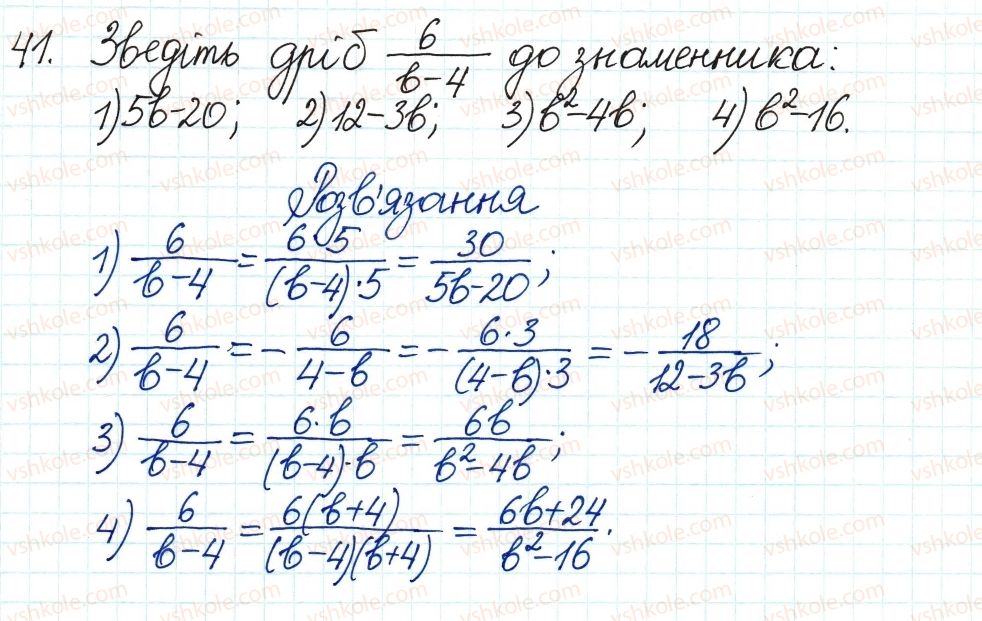 41. Зведіть дріб 6/(b-4) до знаменника:
1) 5b-20; 2) 12-3b; 3) b²-4b; 4) b²-16.
Розв'язання
1) 6/(b-4) = (6·5)/((b-4)·5) = 30/(5b-20);
2) 6/(b-4) = - 6/(4-b) = - (6·3)/((4-b)·3) = - 18/(12-3b);
3) 6/(b-4) = (6·b)/((b-4)·b) = 6b/(b²-4b);
4) 6/(b-4) = 6(b+4)/((b-4)(b+4)) = (6b+24)/(b²-16).
vshkole.com